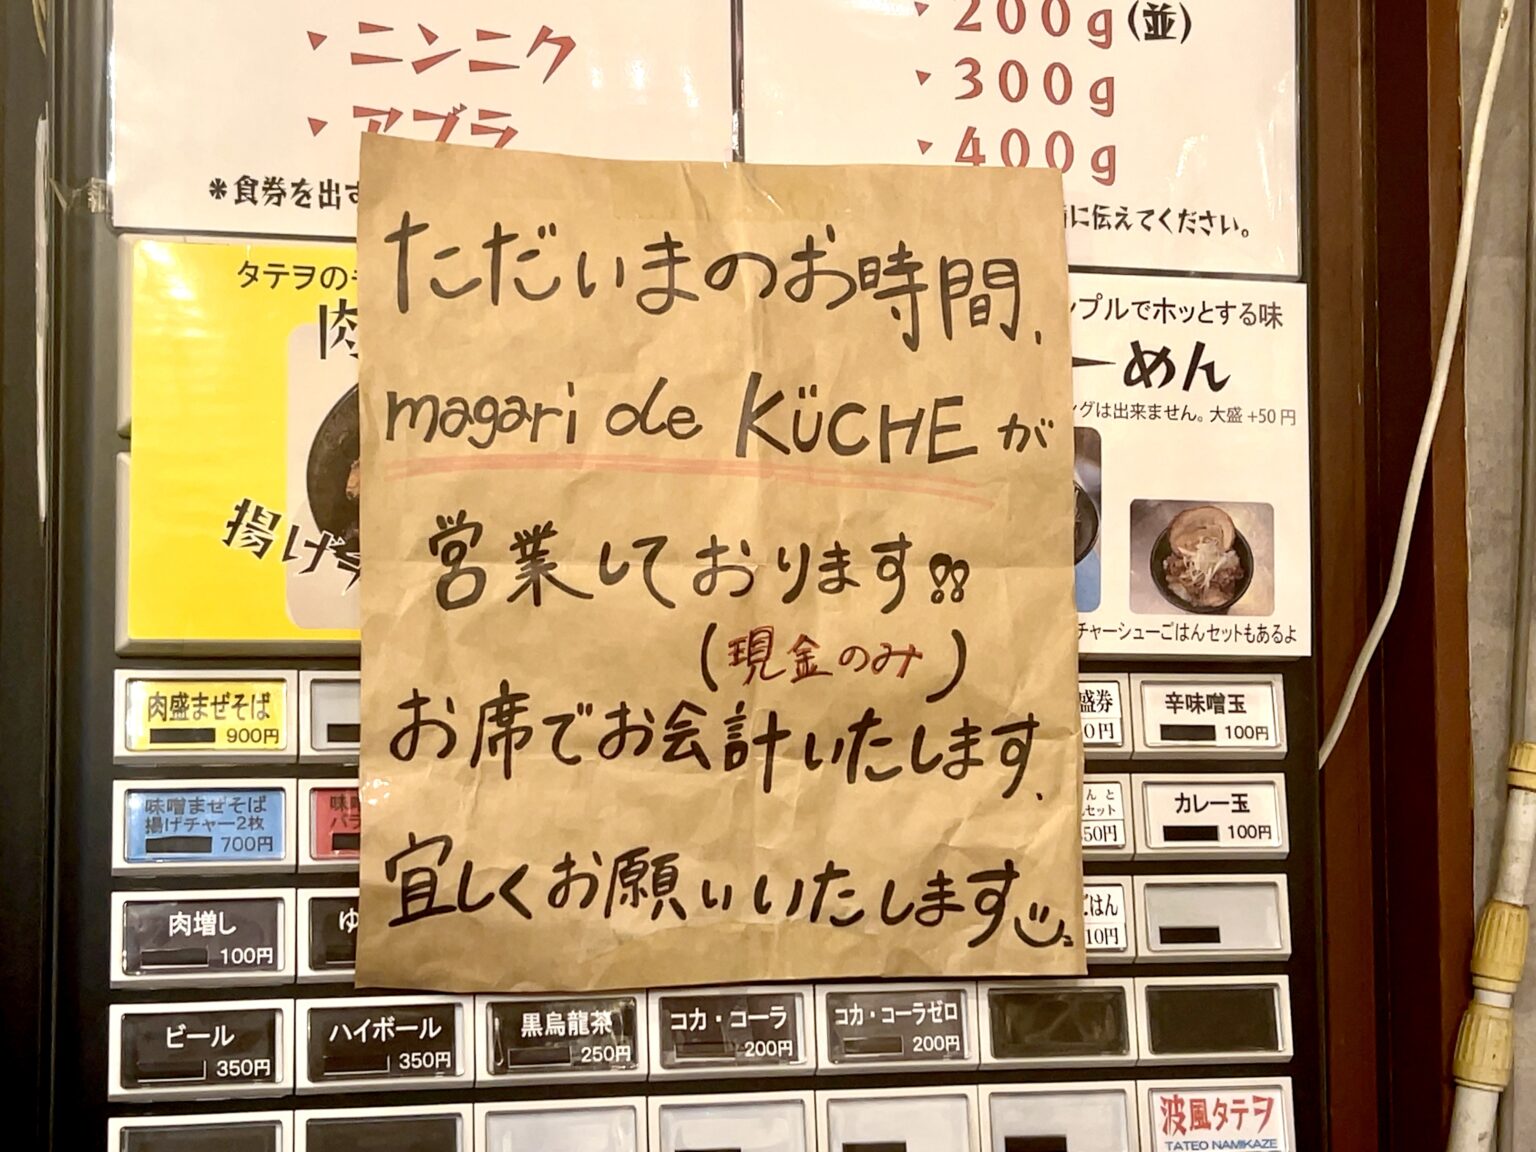 ・ニンニク
・アブラ
＊食券を出す
・200g(並)
・300g
・400g
に伝えてください。
タテヲの
肉
揚げ
ただいまのお時間、
magari de KÜCHE が
営業しております!!
(現金のみ)
お席でお会計いたします、
宜しくお願いいたします
プルでホッとする味
ーめん
グは出来ません。大盛+50円
チャーシューごはんセットもあるよ
肉盛まぜそば
900円
盛券
0円
辛味噌玉
100円
味噌まぜそば
揚げチャー2枚
700円
味噌
バラ
んと
セット
50円
カレー玉
100円
肉増し
100円
ゆ
ごはん
10円
ビール
350円
ハイボール
350円
黒烏龍茶
250円
コカ・コーラ
200円
コカ・コーラゼロ
200円
波風タテヲ
TATEO NAMIKAZE